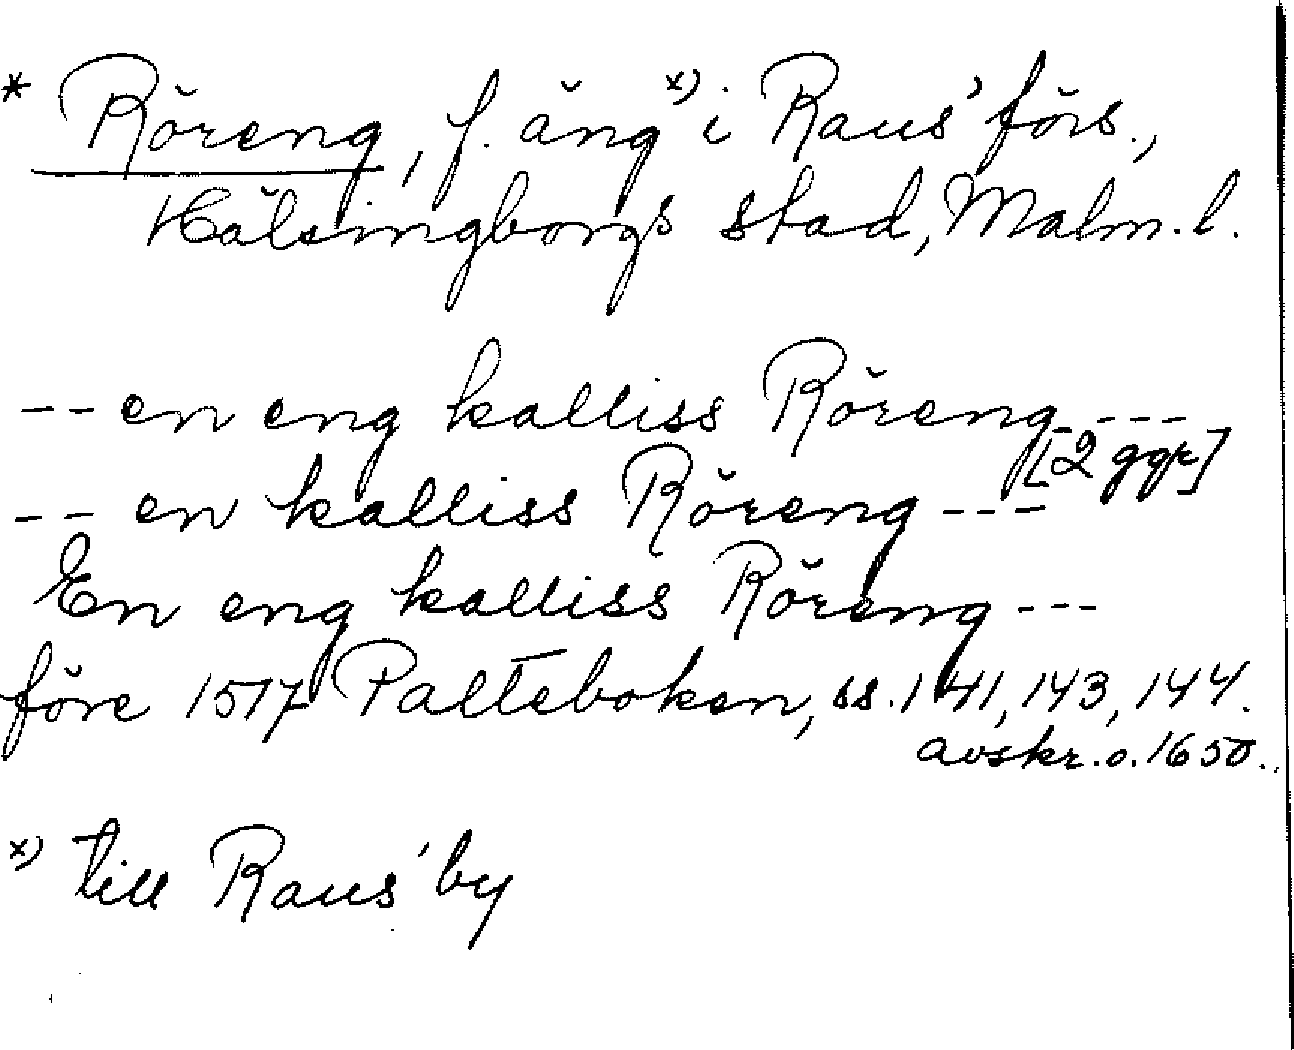 * Röreng, f. äng x) i Raus' förs.,
Hälsingborgs stad, Malm. l.
-- en eng kalliss Röreng ---
[2 ggr]
-- en kalliss Röreng ---
En eng kalliss Röreng ---
före 1517 Palteboken, ss. 141, 143, 144.
avskr. o. 1650.
x) till Raus' by